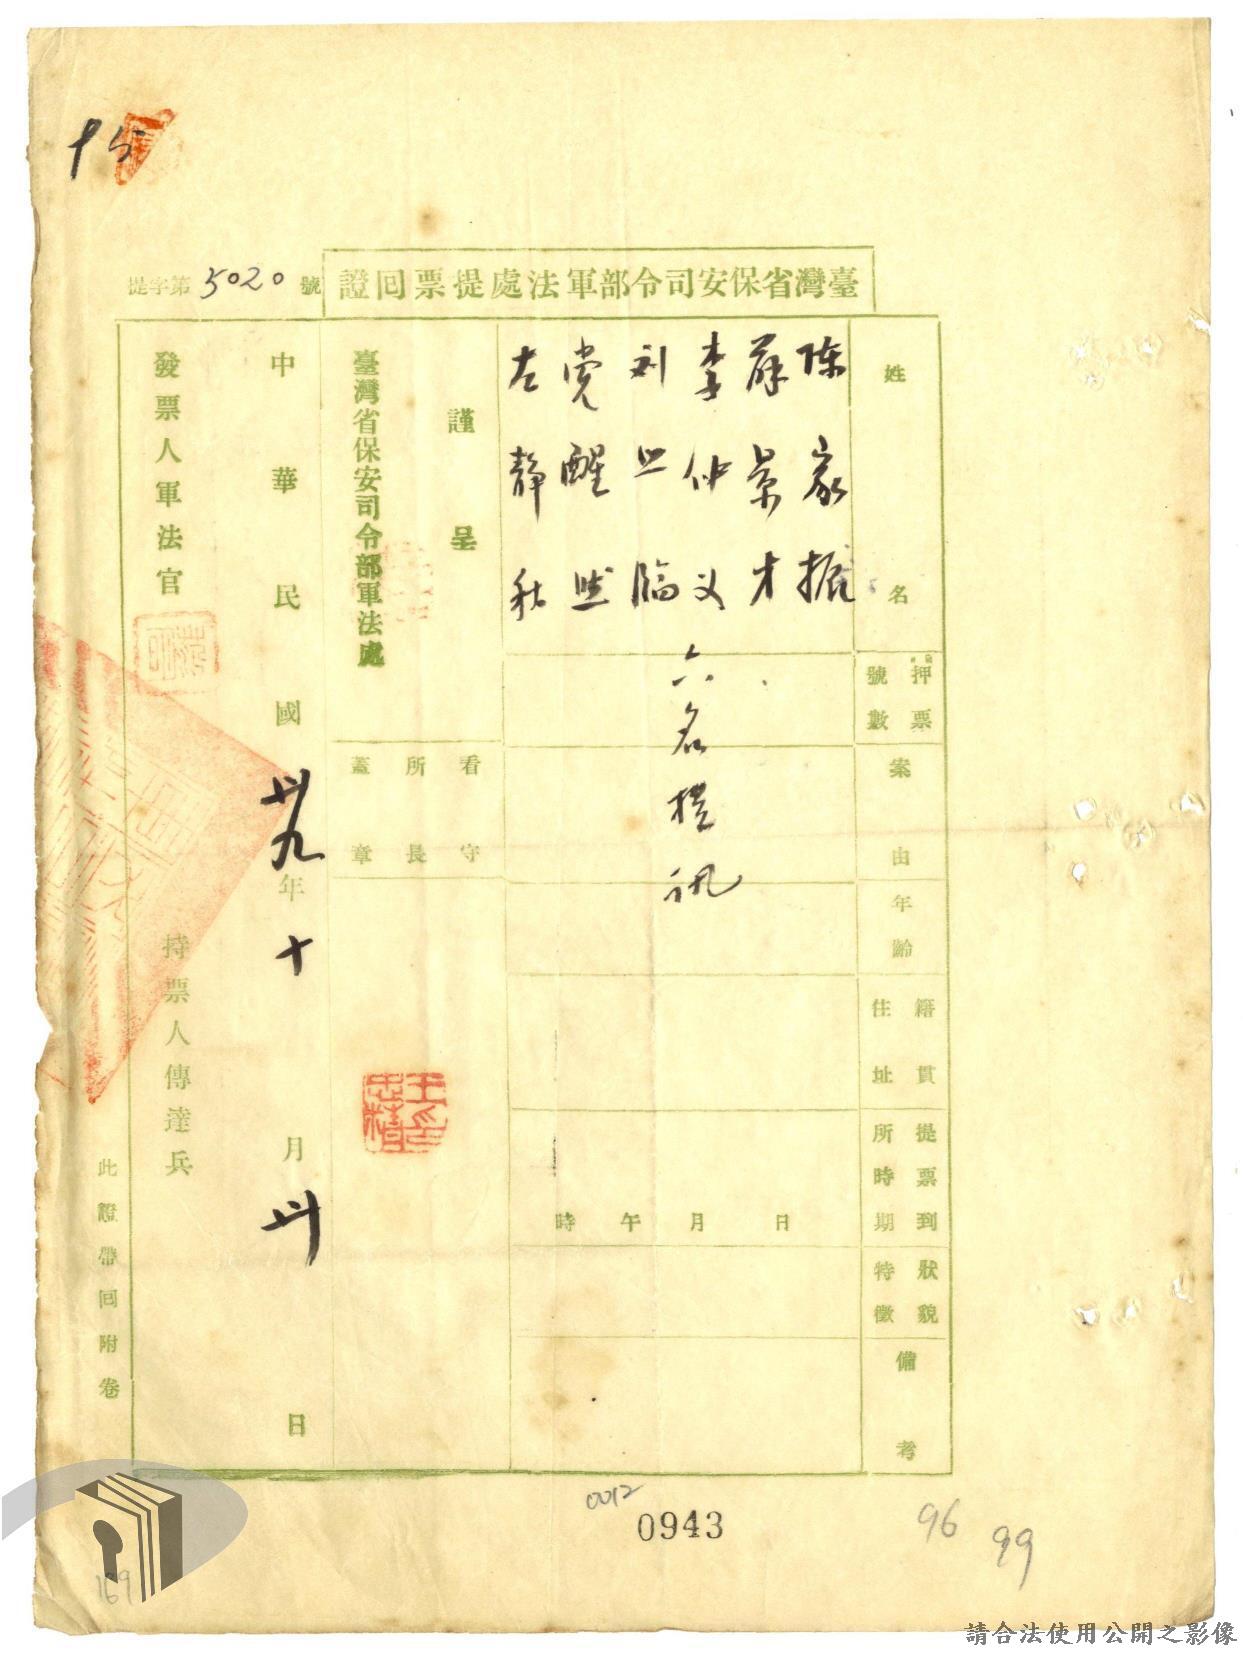 臺灣省保安司令部軍法處提票回證
提字第5020號
姓名
押票號數
案由
年齡
籍貫住址
提票到所時期
狀貌特徵
備考
陈家振
薛景才
李仲义
刘止临
党醒然
左静秋
六名提讯
日
月
午
時
謹呈
臺灣省保安司令部軍法處
看守所長蓋章
中華民國卅九年十月卅日
發票人軍法官
持票人傳達兵
此證帶回附卷
0012
0943
96
99
169
請合法使用公開之影像